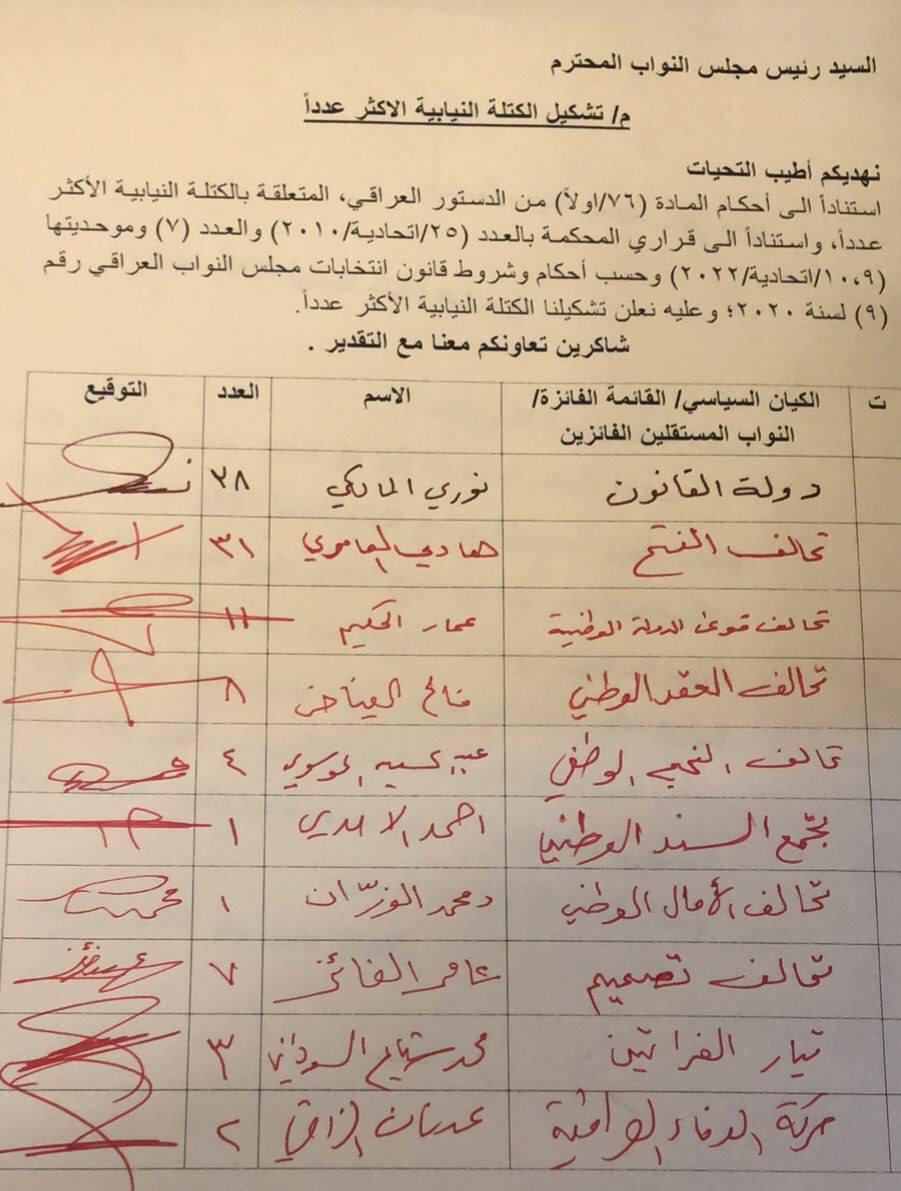 السيد رئيس مجلس النواب المحترم
م/ تشكيل الكتلة النيابية الاكثر عدداً
نهديكم أطيب التحيات
استناداً الى أحكام المادة (٧٦/اولاً) من الدستور العراقي، المتعلقة بالكتلة النيابية الأكثر
عدداً، واستناداً الى قراري المحكمة بالعدد (٢٥/اتحادية/٢٠١٠) والعدد (٧) وموحديتها
(١٠،٩/اتحادية/٢٠٢٢) وحسب أحكام وشروط قانون انتخابات مجلس النواب العراقي رقم
(٩) لسنة ٢٠٢٠؛ وعليه نعلن تشكيلنا الكتلة النيابية الأكثر عدداً.
شاكرين تعاونكم معنا مع التقدير .
ت الكيان السياسي/ القائمة الفائزة/ الاسم العدد التوقيع
النواب المستقلين الفائزين
دولة القانون نوري المالكي ٣٨
تحالف الفتح هادي العامري ٣١
تحالف قوى الدولة الوطنية عمار الحكيم ١١
تحالف العقد الوطني فالح الفياض ٨
تحالف النهج الوطني عبد الحسين الموسوي ٤
تجمع السند الوطني احمد الاسدي ١
تحالف الأمال الوطني د محمد ١
تحالف تصميم عامر الفائز ٧
تيار الفراتين محمد شياع السوداني ٣
حركة الوفاء العراقية عدنان الزرفي ٢